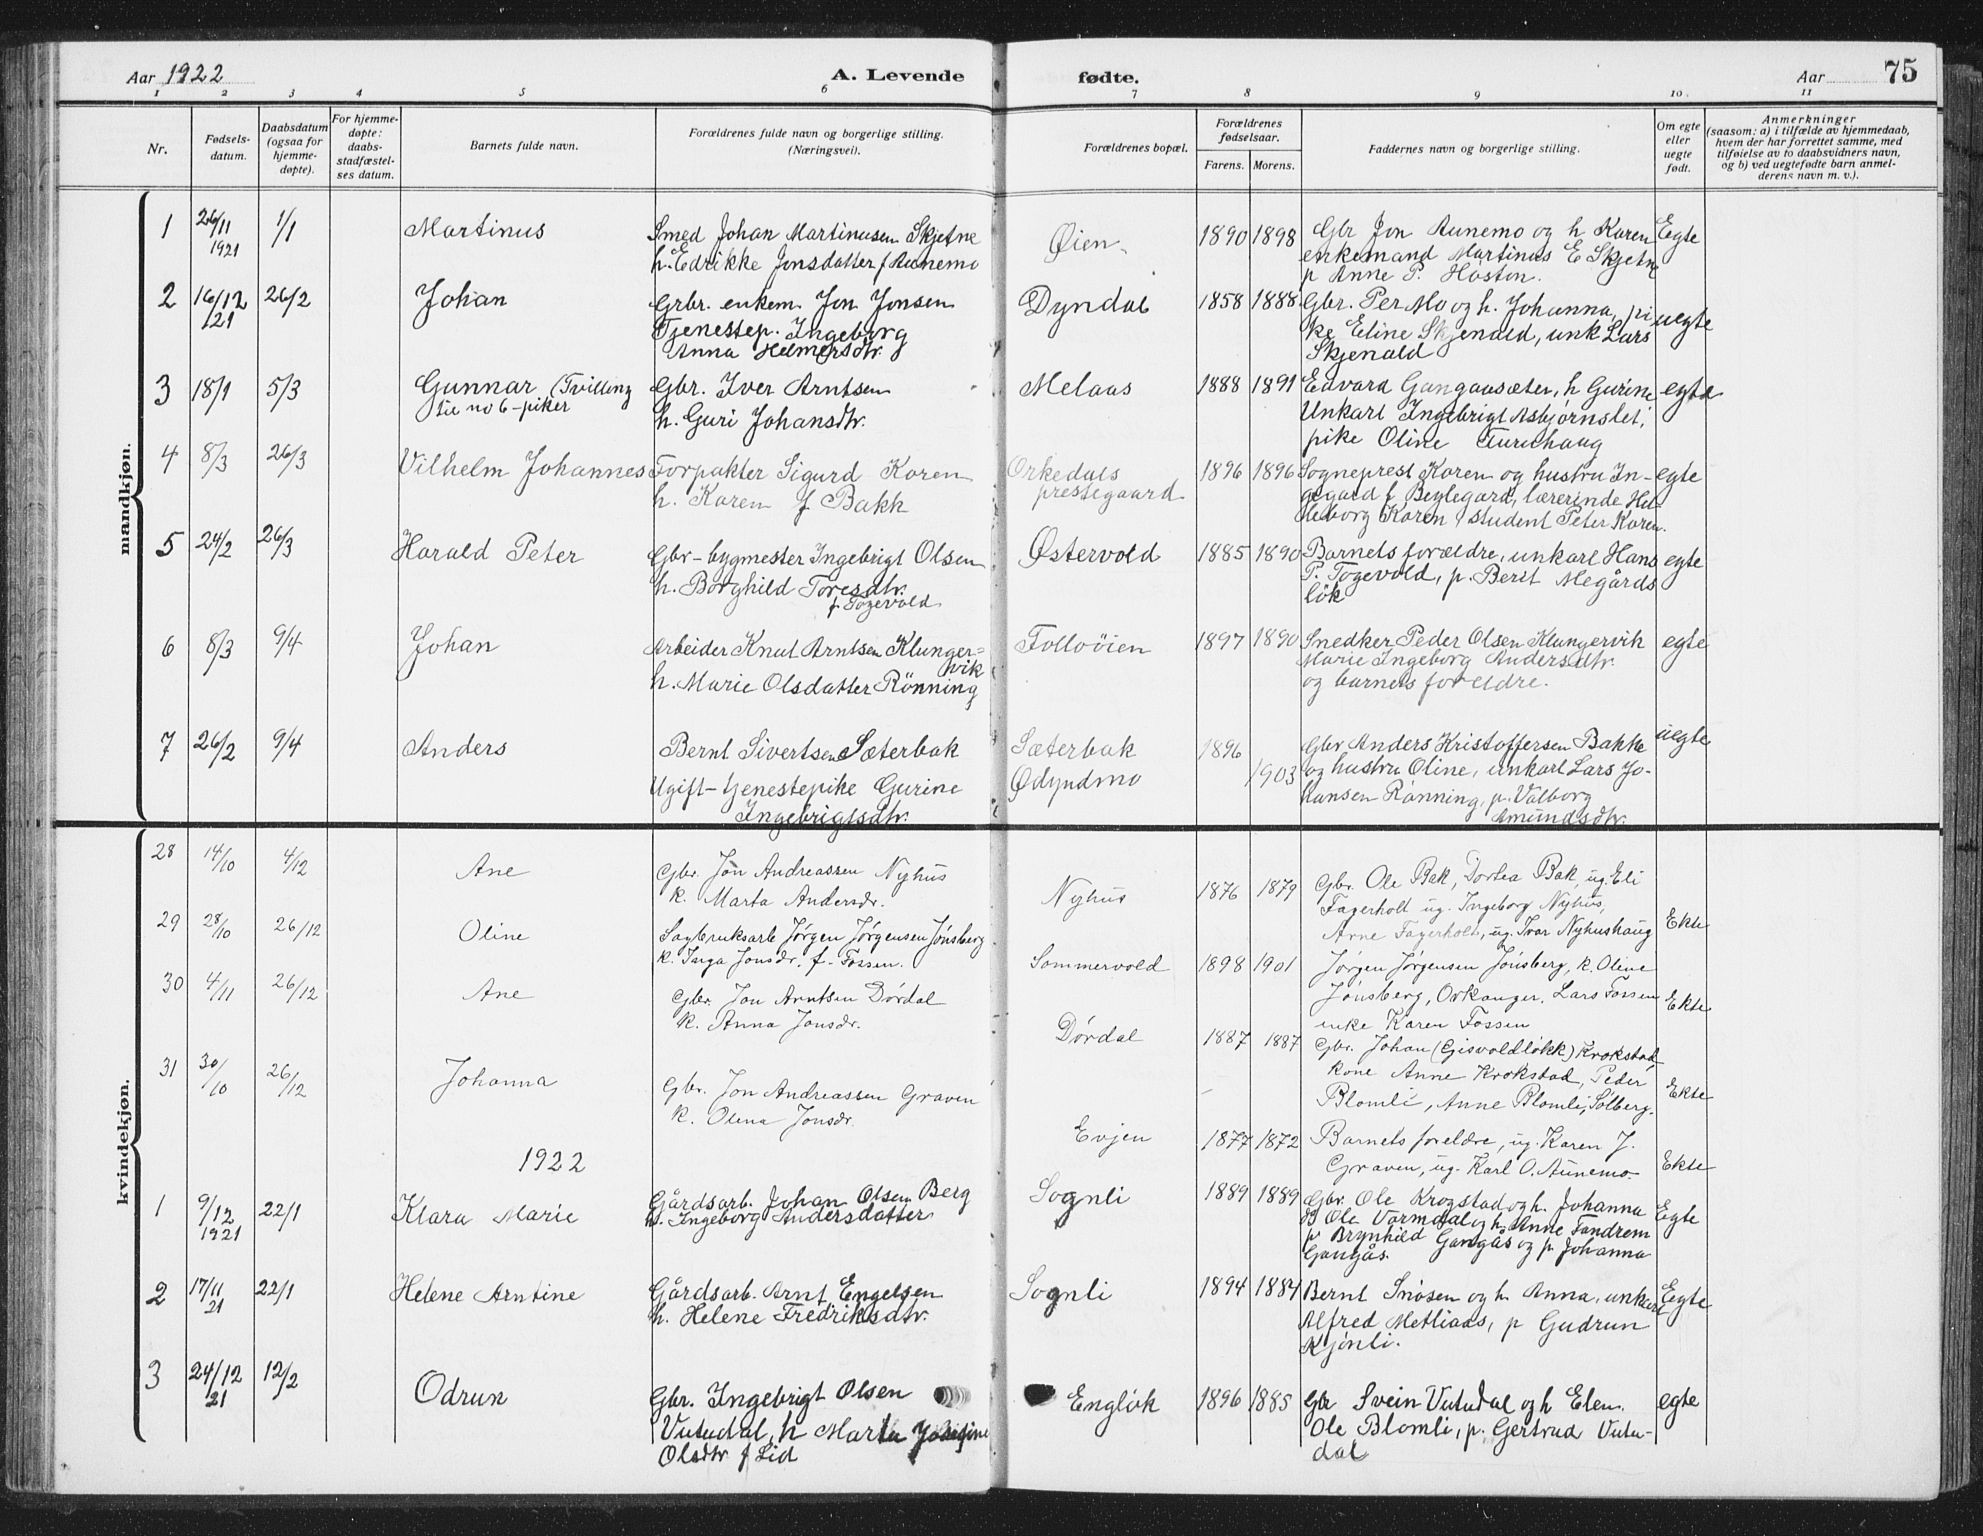 Aar 1922
A. Levende
fødte.
Aar
75
1 2 3 4 5 6 7 8 9 10. 11
Nr.
Fødsels-
datum.
Daabsdatum
(ogsaa for
hjemme-
døpte).
For hjemme-
døpte:
daabs-
stadfæstel-
ses datum.
Barnets fulde navn.
Forældrenes fulde navn og borgerlige stilling.
(Næringsvei).
Forældrenes bopæl.
Forældrenes
fødselsaar.
Farens. Morens.
Faddernes navn og borgerlige stilling.
Om egte
eller
uegte
født.
Anmerkninger
(saasom: a) i tilfælde av hjemmedaab,
hvem der har forrettet samme, med
tilføielse av to daabsvidners navn,
og b) ved uegtefødte barn anmel-
derens navn m. v.).
mandkjøn.
1 26/11 1921 1/1 Martinus
Smed Johan Martinusen Skjetne
h. Edrikke Jonsdatter f Aunemo
Øien 1890 1898
Gbr Jon Aunemo og h Karen
enkemand Martinus E Skjetne
p Anne P. Høston.
Egte
2 16/12 121 26/2 Johan
Grbr. enkem. Jon Jonsen
Tjenestep. Ingeborg
Anna Helmersdtr.
Dyndal 1858 1888
Gbr. Per Mo og h. Johanna, pi
ke Eline Skjenald, unk Lars
Skjenald
uegte
3 18/1 5/3 Gunnar (Tvilling
til no 6-piker
Gbr. Iver Arntsen
h. Guri Johansdtr.
Melaas 1888 1891
Edvard Gangaasæter, h Gurine
Unkarl Ingebrigt Asbjørnslet,
pike Oline
egte
4 8/3 26/3 Vilhelm Johannes
Forpakter Sigurd Koren
h. Karen f Bakk
Orkedals
prestegaard
1896 1896
Sogneprest Koren og hustru In-
gegard f Beylegard, lærerinde Hil-
leborg Koren, student Peter Koren.
egte
5 24/2 26/3 Harald Peter
Gbr-bygmester Ingebrigt Olsen
h. Borghild Toresdtr.
f Togevold
Østervold 1885 1890
Barnets forældre, unkarl Hans
P. Togevold, p. Berit Megårds
løk
egte
6 8/3 9/4 Johan
Arbeider Knut Arntsen Klunger=
vik
h. Marie Olsdatter Rönning
Folloöien 1897 1890
Snedker Peder Olsen Klungervik
Marie Ingeborg Andersdtr.
og barnets foreldre.
egte
7 26/2 9/4 Anders
Bernt Sivertsen Sæterbak
Ugift-tjenestepike Gurine
Ingebrigtsdtr.
Sæterbak
Ødyndmo
1896
1903
Gbr Anders Kristoffersen Bakke
og hustru Oline, unkarl Lars Jo-
hansen Rønning, p. Valborg
Amundsdtr.
uegte
kvindekjøn.
28 14/10 4/12 Ane
Gbr. Jon Andreassen Nyhus
k. Marta Andersdr.
Nyhus 1876 1879
Gbr. Ole Bak, Dortea Bak, ug. Eli
Fagerholt ug. Ingeborg Nyhus,
Arne Fagerholt, ug. Ivar Nyhushaug
Ekte
29 28/10 26/12 Oline
Sagbruksarb Jørgen Jørgensen Jónsberg
k. Inga Jonsdr. f. Fossen.
Sommervold 1898 1901
Jørgen Jørgensen Jónsberg, k. Oline
Jónsberg, Orkanger. Lars Fossen
enke Karen Fossen
Ekte
30 4/11 26/12 Ane
Gbr. Jon Arntsen Dørdal
k. Anna Jonsdr.
Dørdal 1887 1887
Gbr. Johan (Gisvoldløkk) Krokstad
kone Anne Krokstad, Peder
Blomli, Anne Blomli, Solberg.
Ekte
31 30/10 26/12 Johanna
Gbr. Jon Andreassen Graven
k. Olina Jonsdr.
Evjen 1877 1872
Barnets foreldre, ug. Karen J.
Graven, ug. Karl O. Aunemo.
Ekte
1922
1 9/12 1921 22/1 Klara Marie
Gårdsarb. Johan Olsen Berg
h. Ingeborg Andersdatter
Sognli 1889 1889
Gbr. Ole Krogstad og h. Johanna
Ole Vormdal og h. Anne Fandrem
p Brynhild Gangås og p. Johanna
Gangås.
Egte
2 17/11 21 22/1 Helene Arntine
Gårdsarb. Arnt Engelsen
h. Helene Fredriksdtr.
Sognli 1894 1884
Bernt Snøsen og h Anna, unkarl
Alfred Metliaas, p Gudrun
Kjønli.
Egte
3 24/12 21 12/2 Odrun
Gbr. Ingebrigt Olsen
Vutudal, h Marta Josefine
Olsdtr f Lid
Engløk 1896 1885
Gbr Svein Vutudal og h Elen.
Ole Blomli, p. Gertrud Vutu-
dal
egte